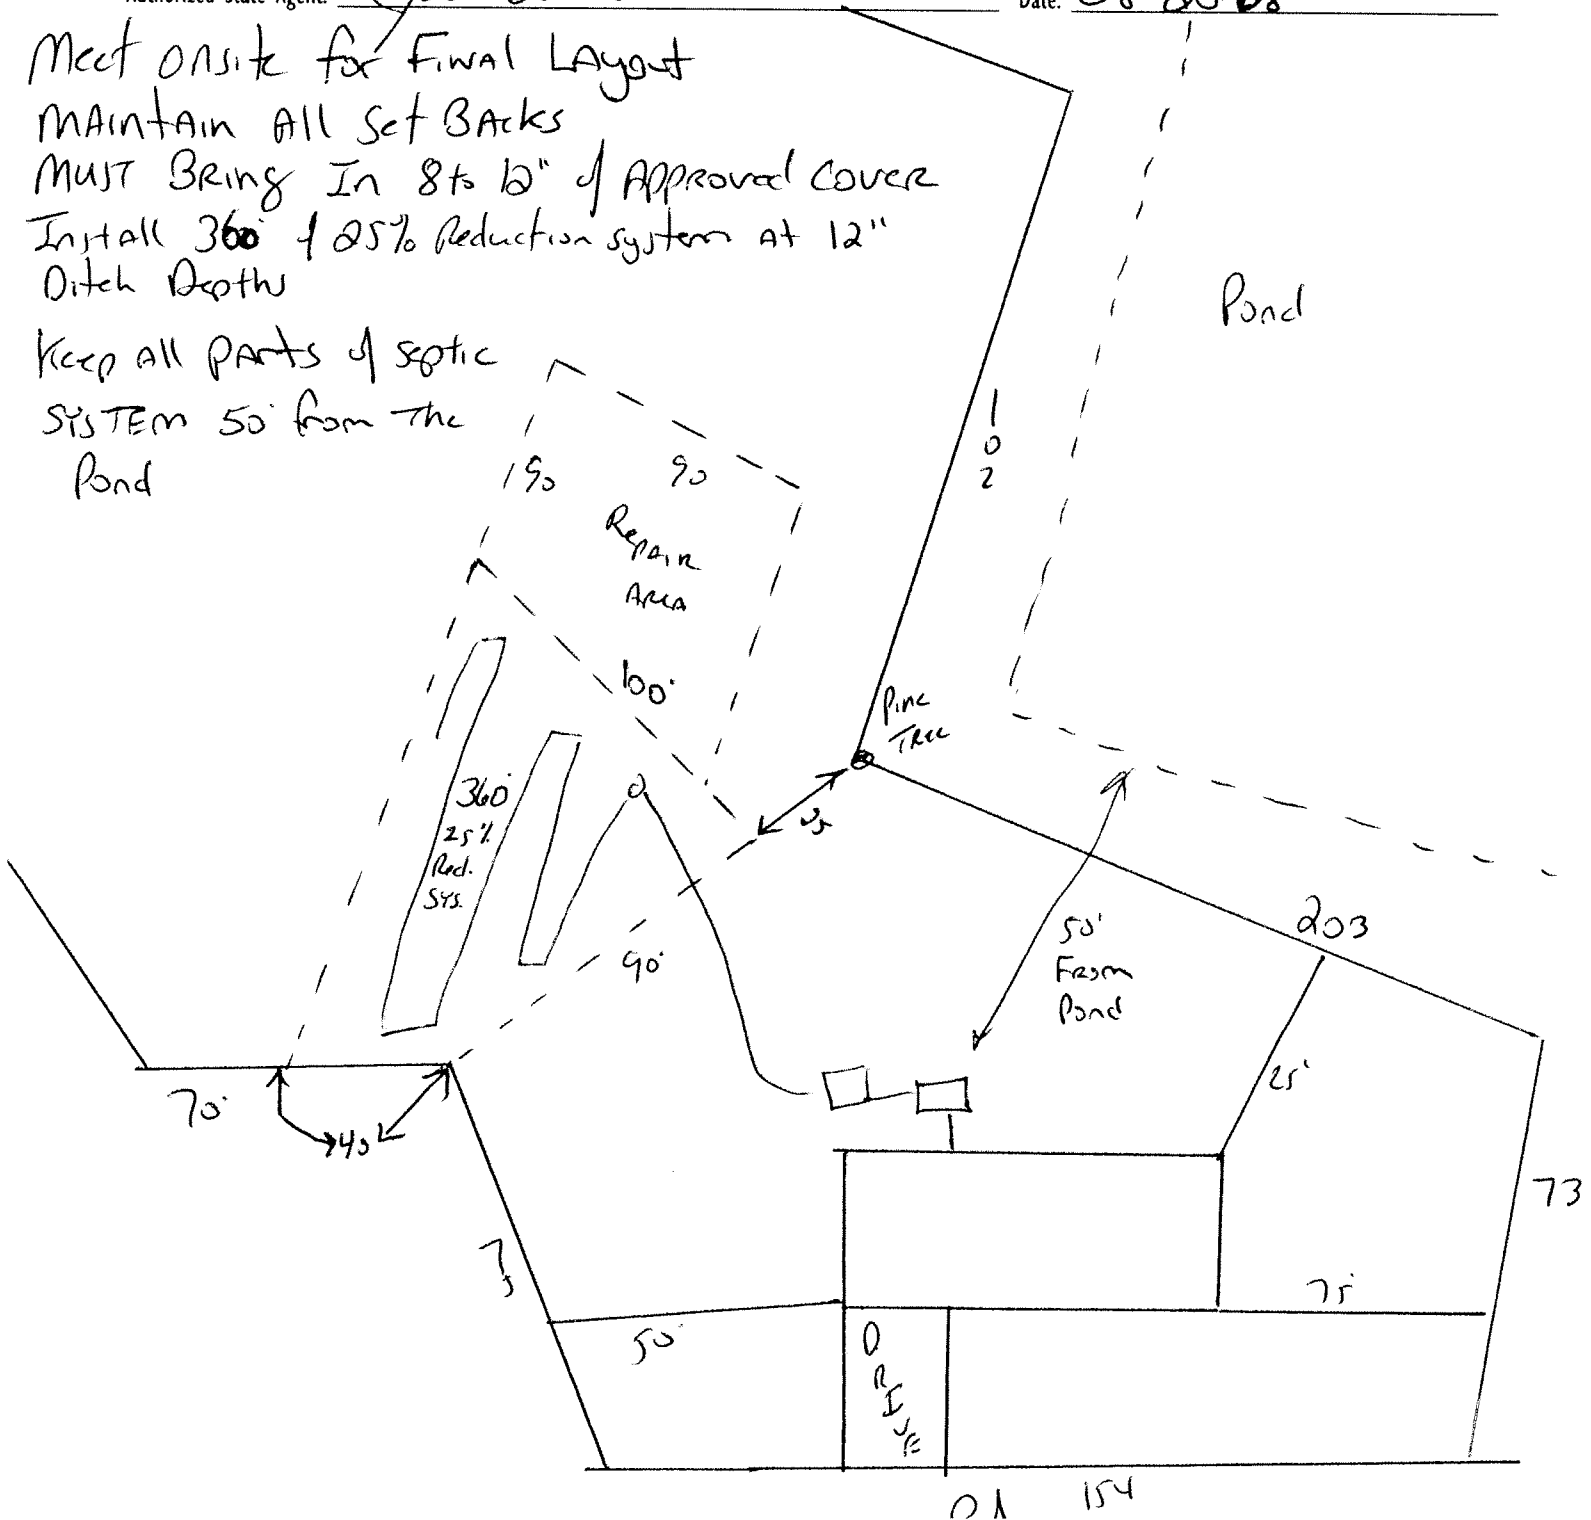 Authorized State Agent:
Date:
Meet onsite for Final Layout
Maintain All Set Backs
Must Bring In 8 to 12" of Approved Cover
Install 360' of 25% Reduction system At 12"
Ditch Depths
Keep All Parts of septic
SYSTEM 50' from The
Pond
Pond
102
90
90
Repair
Area
100'
Pine
Tree
360'
25%
Red.
Sys.
90'
203
50'
From
Pond
25'
70'
40
73
75
75'
50'
DRIVE
154